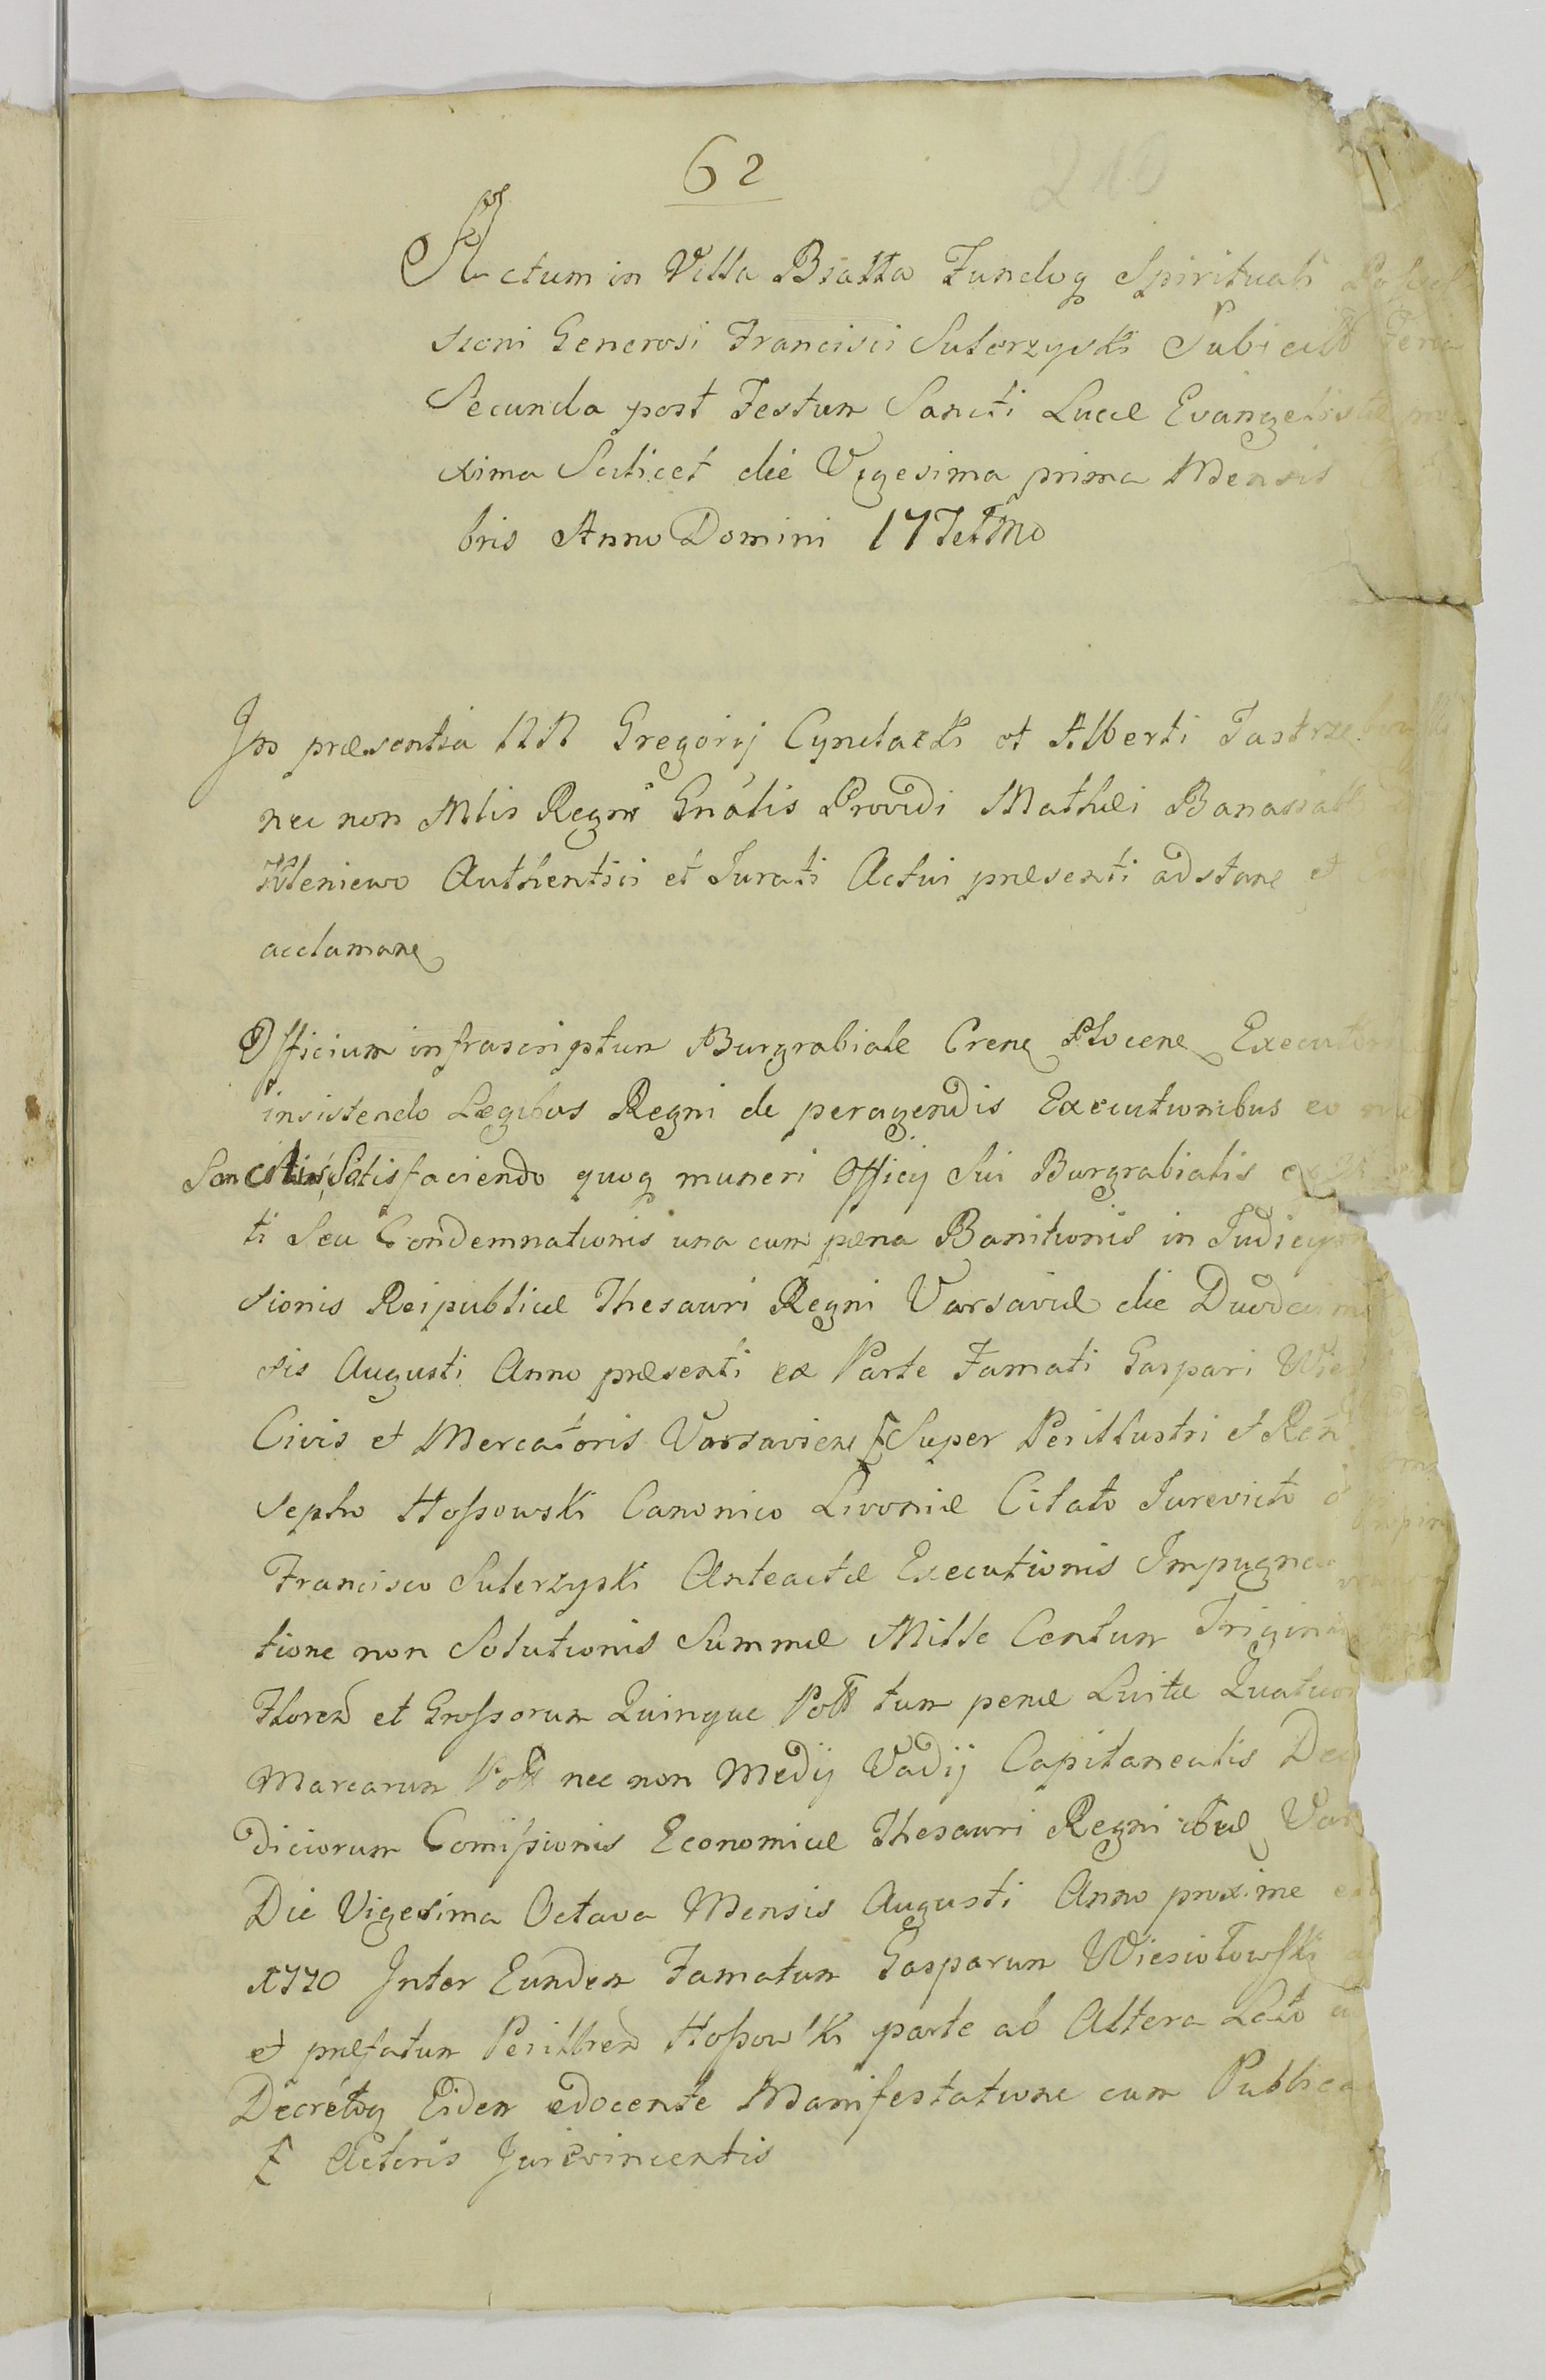 62
210
Actum in Villa Biała Fundoq Spirituali
sioni Generosi Francisci Suterzyski Subiecta Feria
Secunda post Festum Sancti Lucæ Evangelistæ pro
xima Scilicet die Vigesima prima Mensis
bris Anno Domini 17
In præsentia NN Gregorij Cyndacki et Alberti Jastrzę
nec non Mlis Regni Gnalis Providi Mathæi Banasiak
Kleniewo Authentici et Jurati Actui præsenti adstane et
acclamane
Officium infrascriptum Burgrabiale Crene Plocene Executorum
insistendo Legibus Regni de peragendis Executionibus eo
Sancitis, Satisfaciendo quoq muneri Officij Sui Burgrabialis ex
ti Seu Condemnationis una cum pæna Banitionis in Judicijs
sionis Reipublicæ Thesauri Regni Varsaviæ die Duodecima
sis Augusti Anno præsenti ex Parte Famati Gaspari Wies
Civis et Mercatoris Varsaviens Super Perillustri et Ren
sepho Hossowski Canonico Livoniæ Citato Jurevicto
Francisco Suterzyski Anteactæ Executionis Impugna
tione non Solutionis Summæ Mille Centum Triginta
Floren et Grossorum Quinque Poll tum penæ Luitæ Quatuor
Marcarum Poll nec non Medij Vadij Capitanealis Dec
diciorum Comissionis Economicæ Thesauri Regni Var
Die Vigesima Octava Mensis Augusti Anno proxime
1770 Inter Eundem Famatum Gasparum Wiesiołowski
et præfatum Perillren Hossowski parte ab Altera Lato
Decretoq Eidem edocente Manifestatione cum Publica
Actoris Jurevincentis